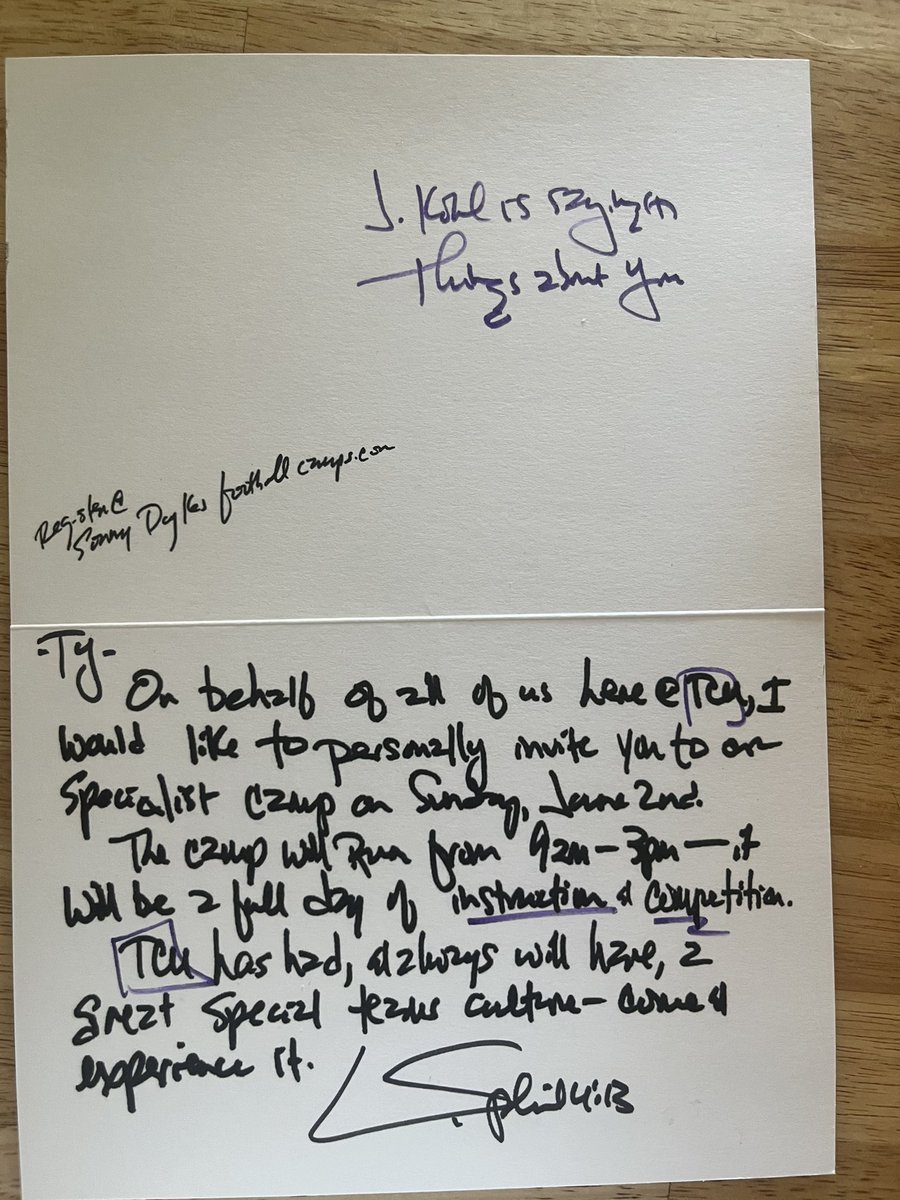 J. Kohl is saying
Things about you
Register @
Sonny Dykes football camps.com
-Ty-
On behalf of all of us here @ TCU, I
would like to personally invite you to our
Specialist camp on Sunday, June 2nd.
The camp will Run from 9am - 3pm — it
will be a full day of instruction & competition.
TCU has had, & always will have, a
great special teams culture - come &
experience it.
Phil 4:13